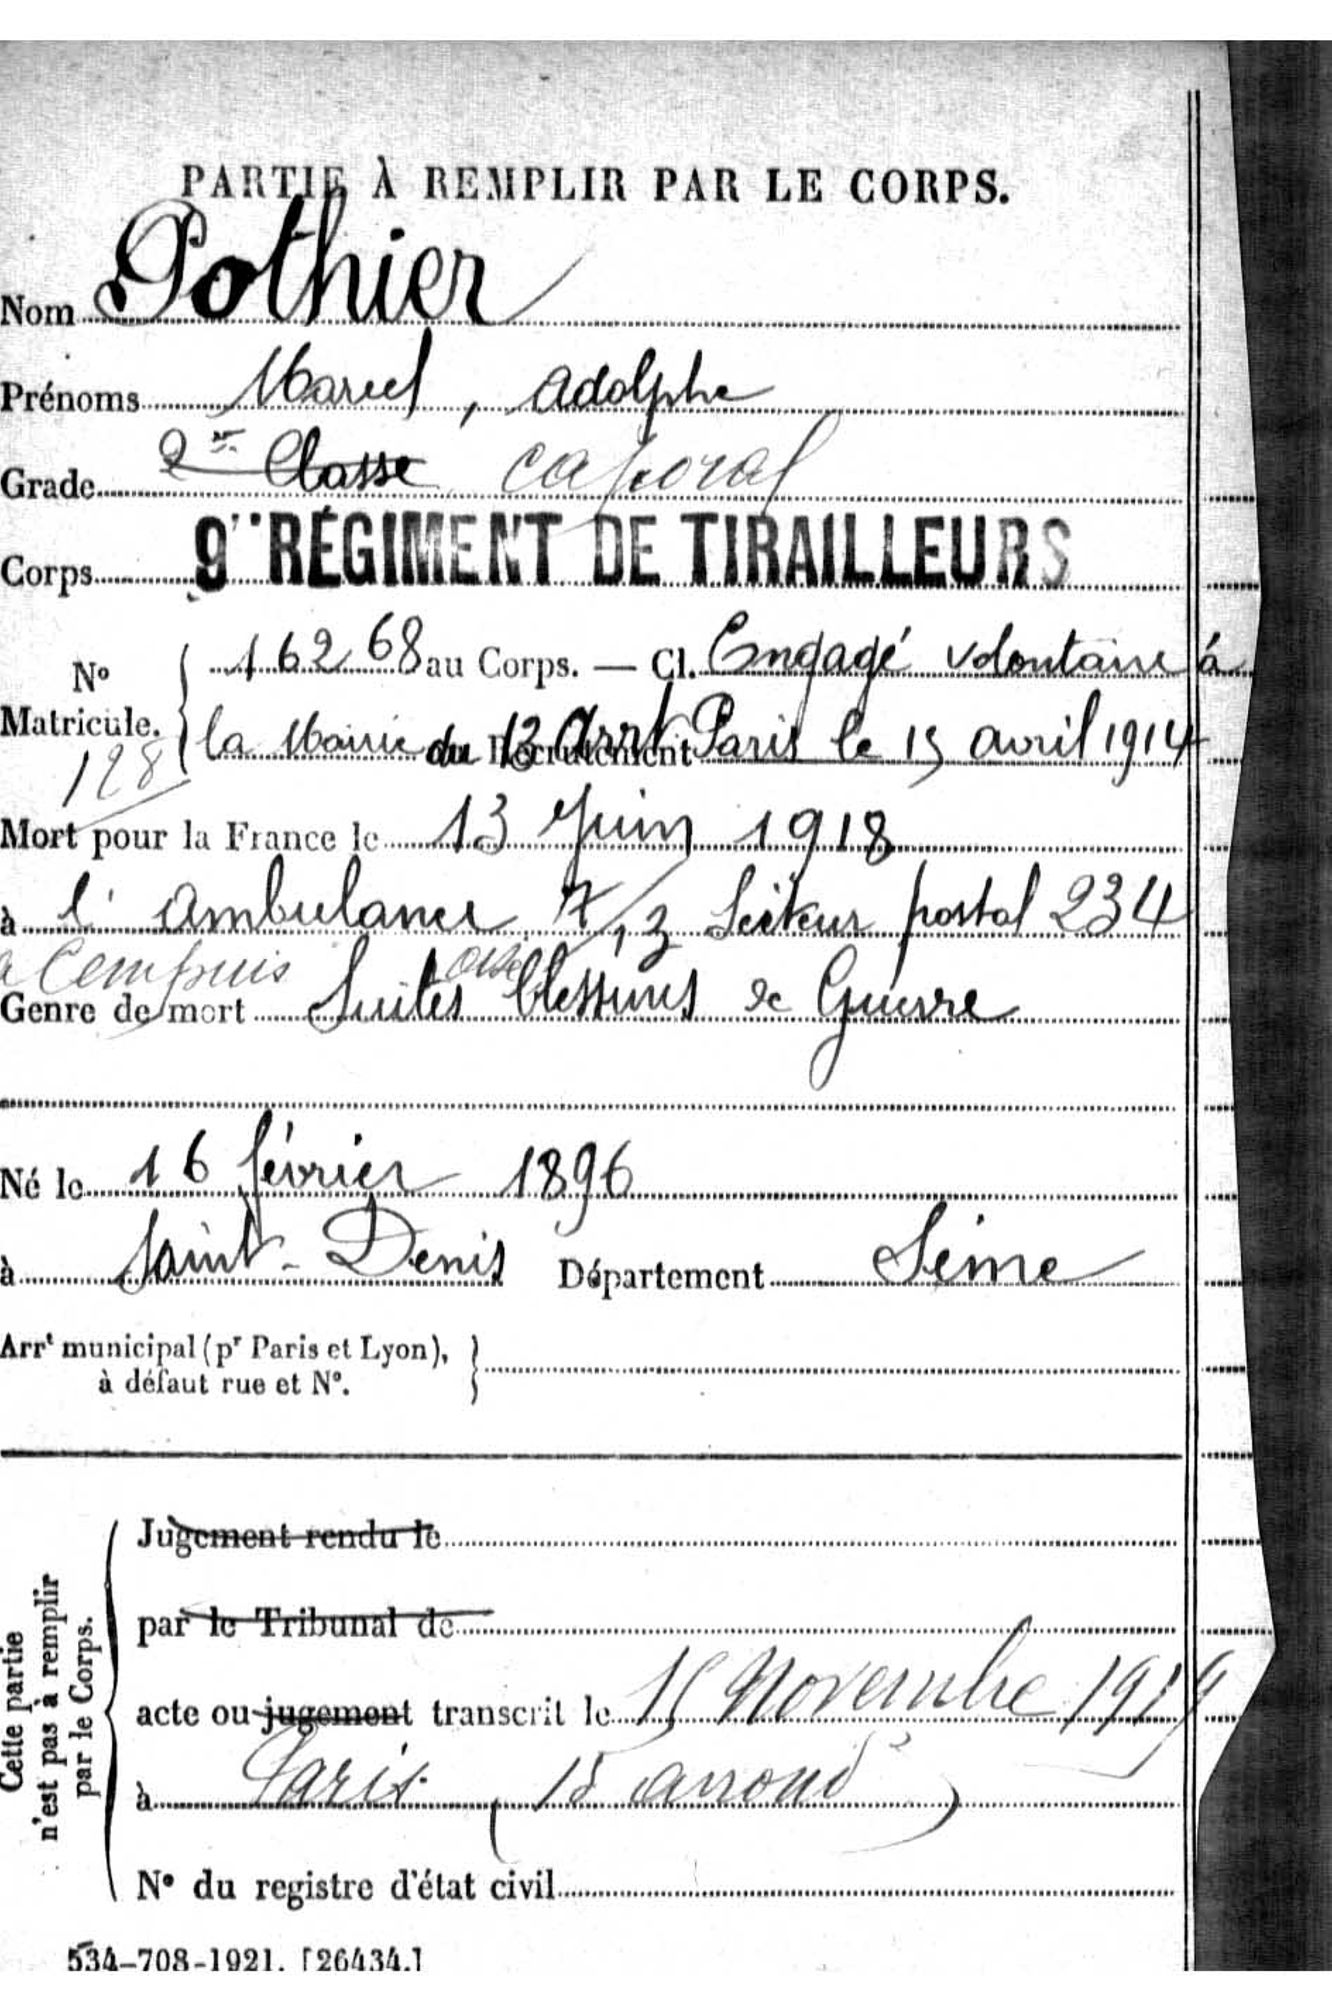 PARTIE À REMPLIR PAR LE CORPS.
Nom Pothier
Prénoms Marcel, Adolphe
Grade 2e Classe caporal
Corps 9e RÉGIMENT DE TIRAILLEURS
No Matricule. 16268 au Corps. — Cl. Engagé volontaire à
la Mairie du 13 Arrt Recrutement Paris le 15 avril 1914
128
Mort pour la France le 13 Juin 1918
à l'Ambulance 7/13 Secteur postal 234
à Cempuis Oise
Genre de mort Suites blessures de Guerre
Né le 16 février 1896
à Saint-Denis Département Seine
Arrt municipal (pr Paris et Lyon),
à défaut rue et No.
Cette partie
n'est pas à remplir
par le Corps.
Jugement rendu le
par le Tribunal de
acte ou jugement transcrit le 15 Novembre 1919
à Paris (15 arrond)
No du registre d'état civil
534-708-1921. [26434.]